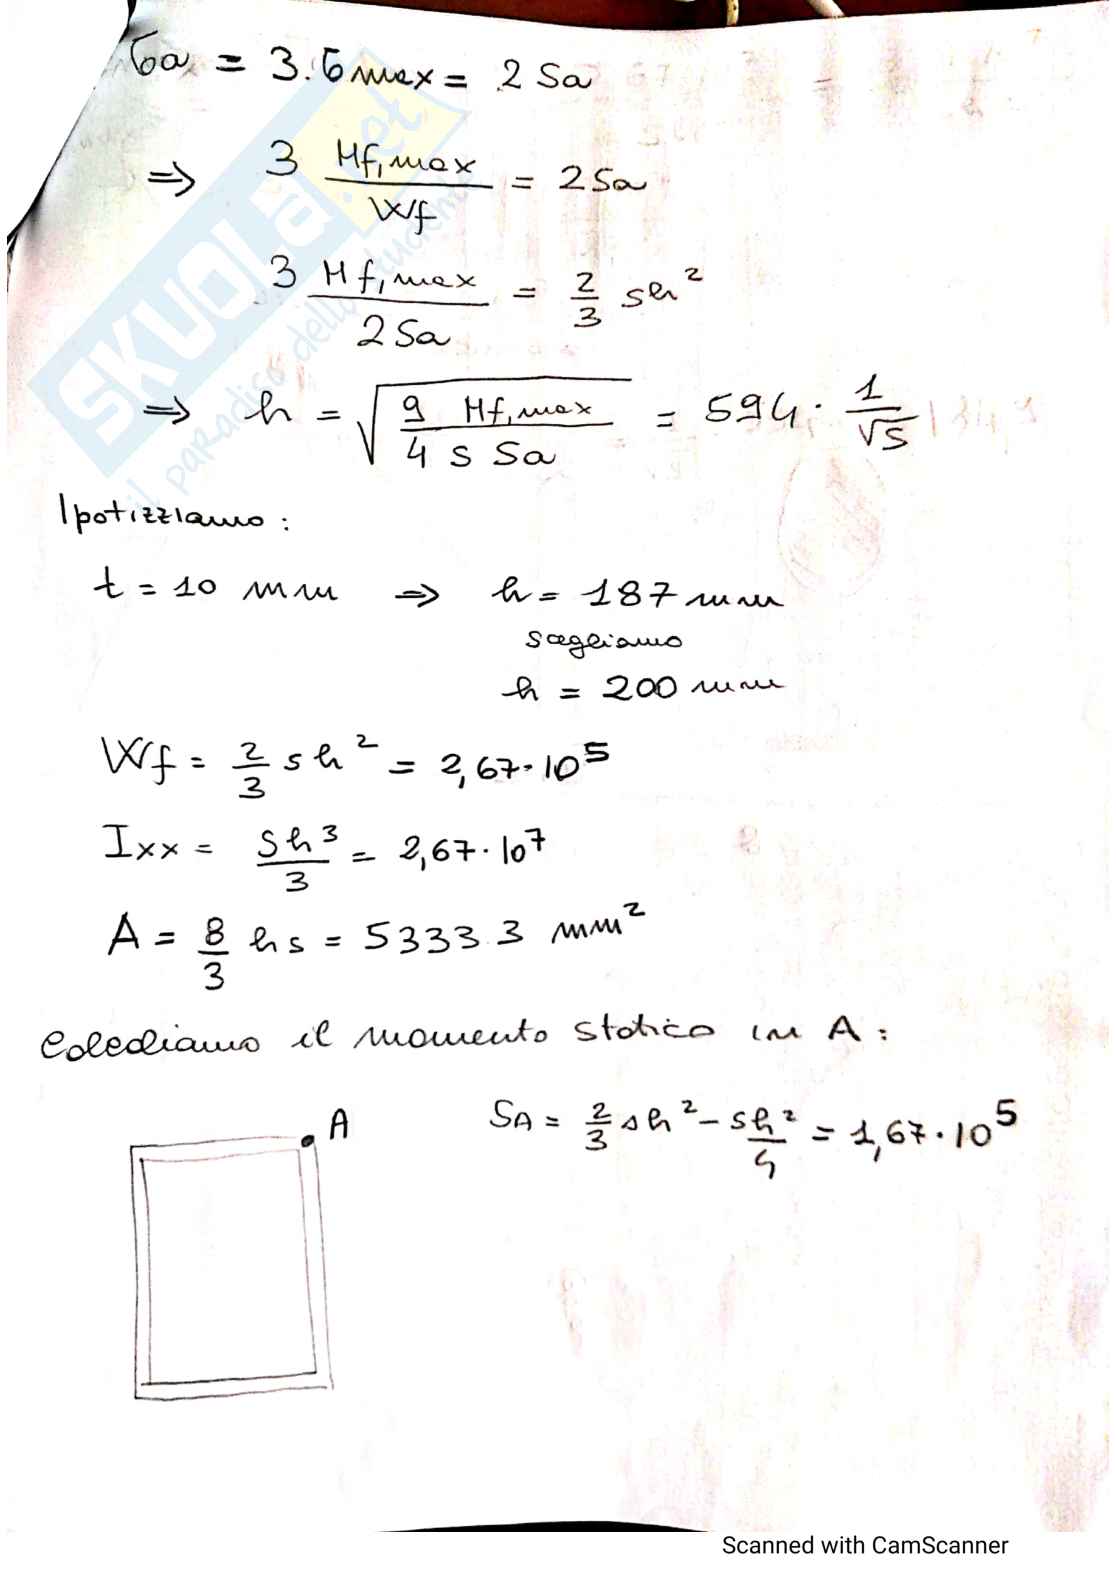 σa = 3·σmax = 2 Sa
⇒ 3 Mf,max / Wf = 2 Sa
3 Mf,max / 2 Sa = 2/3 sh²
⇒ h = √(9 Mf,max / 4 s Sa) = 594 · 1/√s
Ipotizziamo :
t = 10 mm ⇒ h = 187 mm
scegliamo
h = 200 mm
Wf = 2/3 s h² = 2,67·10⁵
Ixx = sh³/3 = 2,67·10⁷
A = 8/3 h s = 5333.3 mm²
Calcoliamo il momento statico in A :
A
SA = 2/3 sh² - sh²/4 = 1,67·10⁵
SKUOLA.net
il paradiso dello studente
Scanned with CamScanner